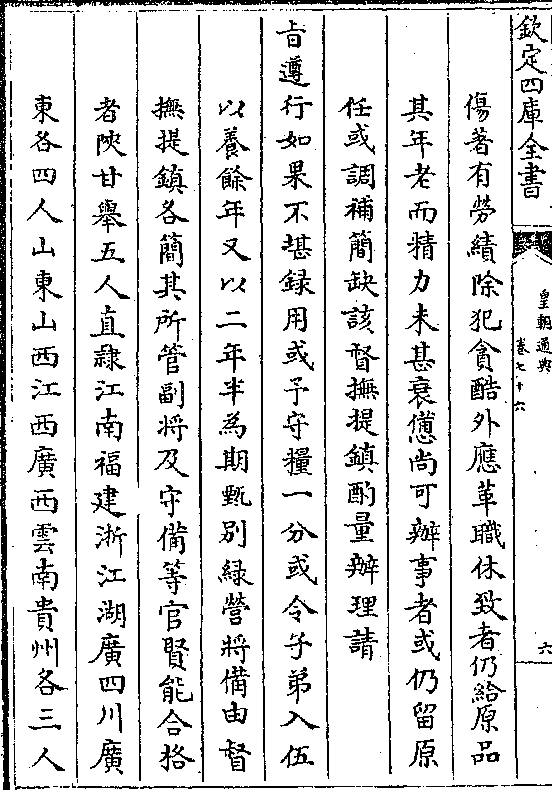 欽定四庫全書
皇朝通典
卷七十六
六
傷著有勞績除犯貪酷外應革職休致者仍給原品
其年老而精力未甚衰憊尚可辦事者或仍留原
任或調補簡缺該督撫提鎮酌量辦理請
旨遵行如果不堪録用或予守糧一分或令子弟入伍
以養餘年又以二年半為期甄別緑營將備由督
撫提鎮各簡其所管副將及守備等官賢能合格
者陜甘舉五人直隸江南福建浙江湖廣四川廣
東各四人山東山西江西廣西雲南貴州各三人